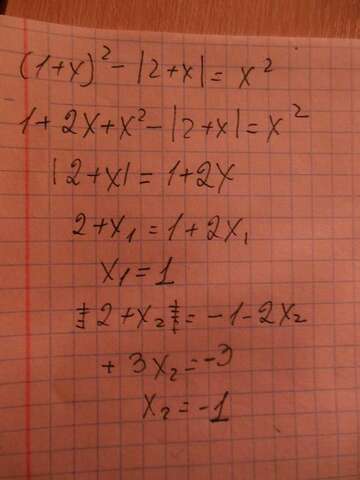 (1+x)² - |2+x| = x²
1 + 2x + x² - |2+x| = x²
|2+x| = 1+2x
2+x₁ = 1+2x₁
x₁ = 1
2+x₂ = -1-2x₂
+ 3x₂ = -3
x₂ = -1